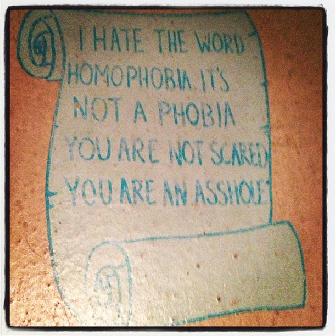 I HATE THE WORD
HOMOPHOBIA. IT'S
NOT A PHOBIA
YOU ARE NOT SCARED
YOU ARE AN ASSHOLE